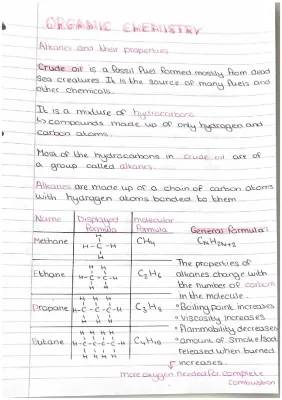 ORGANIC CHEMISTRY
Alkanes and their properties
Crude oil is a fossil fuel formed mostly from dead
sea creatures. It is the source of many fuels and
other chemicals.
It is a mixture of hydrocarbons
↳ compounds made up of only hydrogen and
carbon atoms.
Most of the hydrocarbons in crude oil are of
a group called alkanes.
Alkanes are made up of a chain of carbon atoms
with hydrogen atoms bonded to them
Name Displayed formula molecular formula General formula:
Methane CH4 CnH2n+2
H
H-C-H
H
Ethane C2H6
H H
H-C-C-H
H H
Propane C3H8
H H H
H-C-C-C-H
H H H
Butane C4H10
H H H H
H-C-C-C-C-H
H H H H
The properties of
alkanes change with
the number of carbon
in the molecule.
• Boiling point increases
• Viscosity increases
• Flammability decreases
• amount of smoke/soot
released when burned
increases.
more oxygen needed for complete
combustion